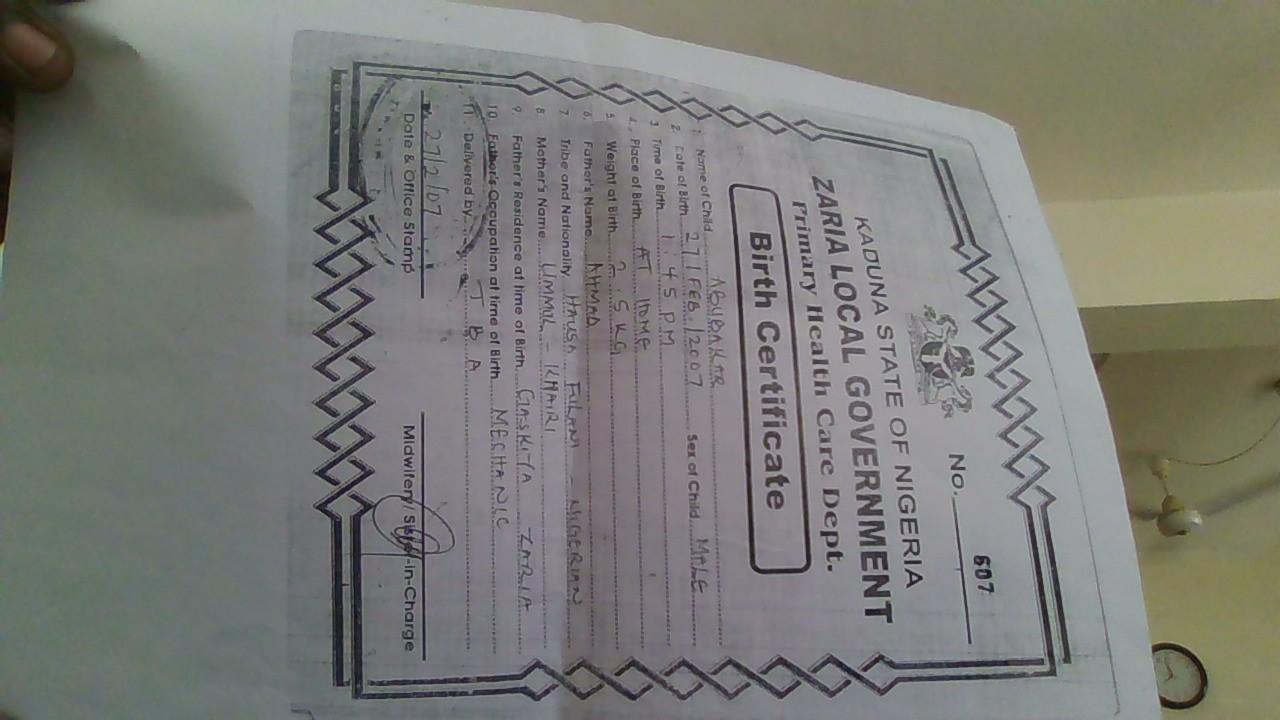 No. 607
KADUNA STATE OF NIGERIA
ZARIA LOCAL GOVERNMENT
Primary Health Care Dept.
Birth Certificate
1. Name of Child ABUBAKAR
2. Date of Birth 27/FEB./2007 Sex of Child MALE
3. Time of Birth 1:45PM
4. Place of Birth AT HOME
5. Weight at Birth 2.5KG
6. Father's Name AHMAD
7. Tribe and Nationality HAUSA FULANI - NIGERIAN
8. Mother's Name UMMUL-KHAIRI
9. Father's Residence at time of Birth GASKIYA ZARIA
10. Father's Occupation at time of Birth MECHANIC
11. Delivered by T B A
27/2/07
Date & Office Stamp Midwifery/ Sister-in-Charge